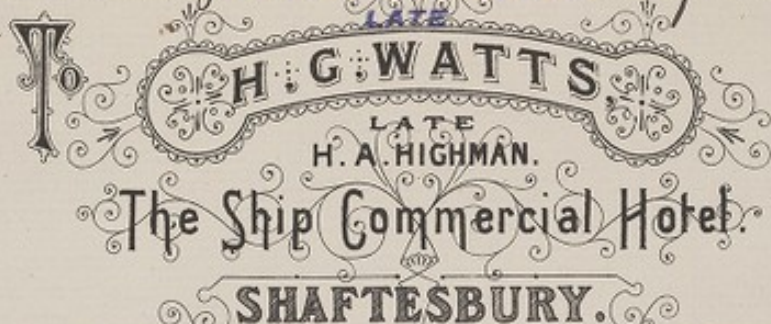 LATE
To H. G. WATTS,
LATE
H. A. HIGHMAN.
The Ship Commercial Hotel.
SHAFTESBURY.